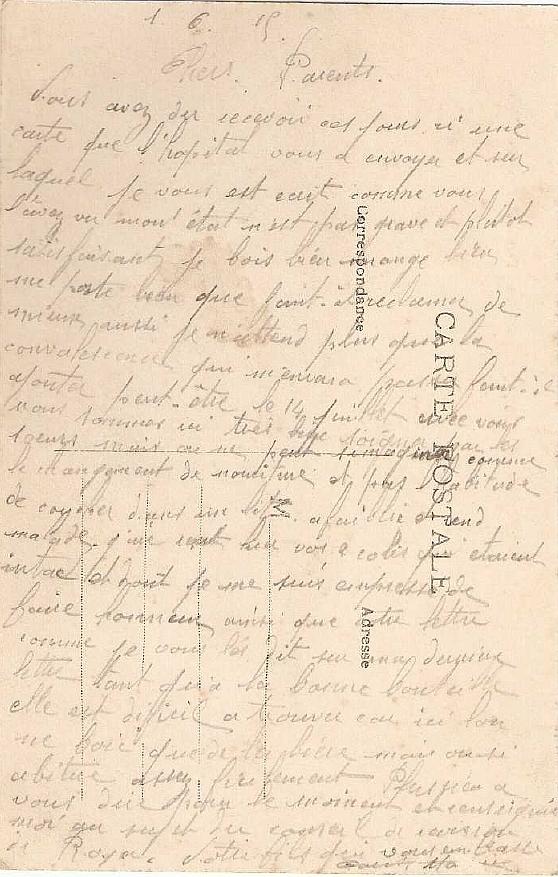 1. 6. 15.
Chers. Parents.
Vous avez du recevoir ces jours ci une
carte que l'hopital vous a envoyer et sur
laquel je vous est ecrit comme vous
l'avez vu mont état n'est pas grave et plutot
satisfaisant je bois bien mange bien
me porte bien que faut-il reclamer de
mieux aussi je n'attend plus que la
convalescence qui m'envera passer faut-il
ajouter peut-être le 14 juillet avec vous
nous sommes ici tres bien soigner par les
soeurs mais on ne peut s'imaginer comme
le changement de nouriture et pas l'abitude
de coucher dans un lit afaiblie et rend
malade, j'ai reçut hier vos 2 colis qui étaient
intact et dont je me suis empressé de
faire honneur ainsi que votre lettre
comme je vous l'es dit sur ma derniere
lettre tant qu'a la bonne bouteille
elle est dificil a trouver car ici l'on
ne boit que de la biere mais on si
abitue assez Plus rien a
vous dire pour le moment et renseigner
moi au sujet du conseil de revision
à Votre fils qui vous embrasse
CARTE POSTALE
Correspondance
Adresse
M